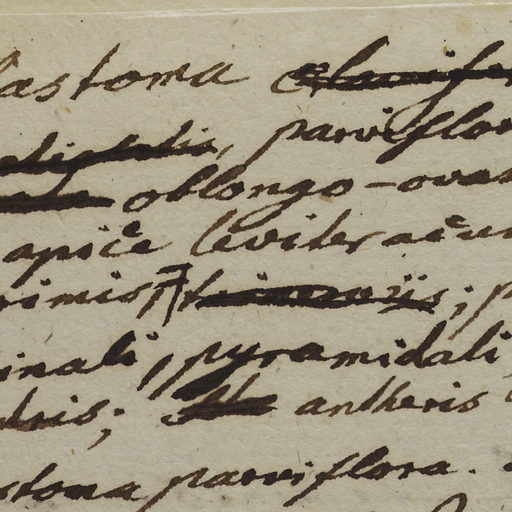 lastoma
parviflor
oblongo-ova
apice leviter acu
rimis,
inali, pyramidali
dris; antheris
stoma parviflora.